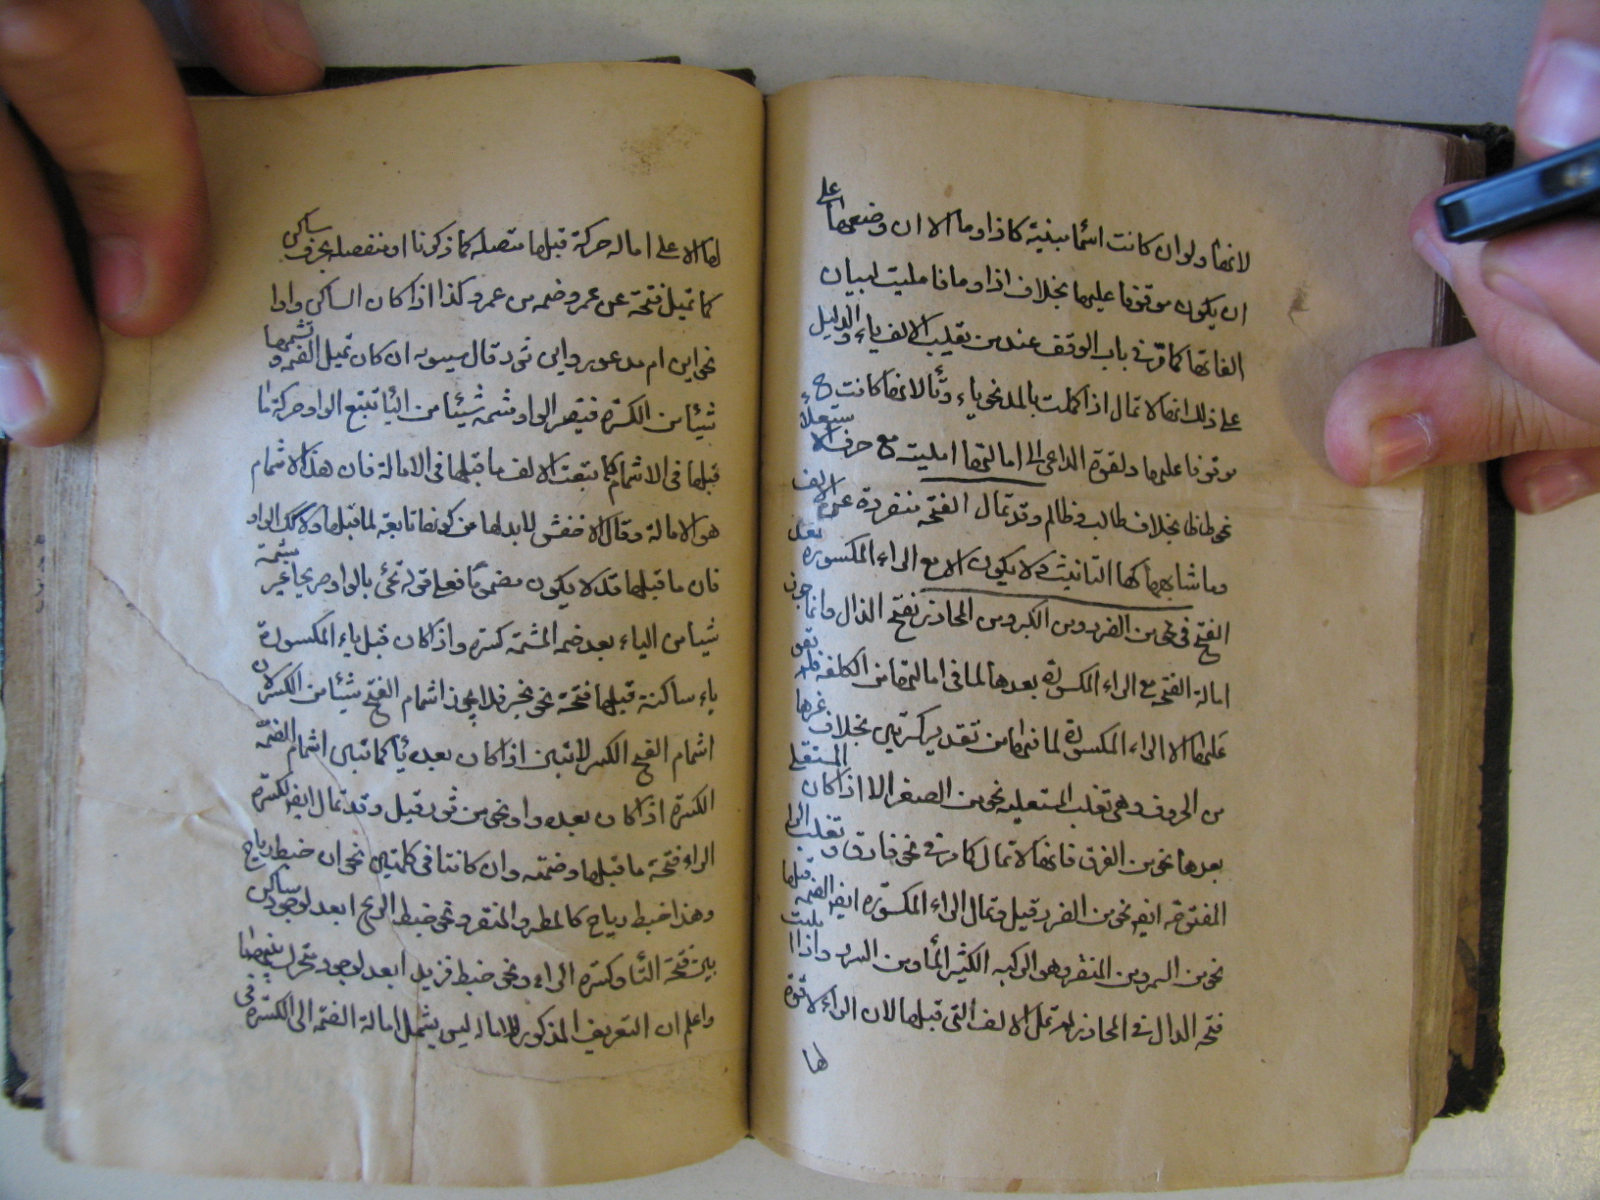 لانها ولو ان كانت اسما مبنية كاذا وما الا ان وضعها على
ان يكون موقوفا عليها بخلاف اذا وما فامليت لبيان
الفاتها كما مر في باب الوقف عند من يقلب الالف ياء والدليل
على ذلك انها لا تمال اذا كملت بالمد نحو ياء وتاء لانها كانت ح
موقوفا عليها ولقوة الداعى الى امالتها امليت مع حرف الاستعلاء
نحو طا ظا بخلاف طالب وظالم وقد تمال الفتحة منفردة عن الالف
وما شابهها كهاء التانيث ولا يكون الا مع الراء المكسورة
الفتح فى نحو من الضرر ومن الكبر ومن المحاذر بفتح الذال وانما جوز
امالة الفتح مع الراء المكسورة بعدها لما فى امالتها من الكلفة فلم تقو
عليها الا الراء المكسورة لما فيها من تقدير كسرتين بخلاف غيرها
من الحروف وهى تغلب المستعلية نحو من الصغر الا اذا كان المستعلى
بعدها نحو من الفرق فانها لا تمال كما مر فى نحو فارق وتغلب الراء
المفتوحة ايضا نحو من الضرر قيل وتمال الراء المكسورة ايضا الضمة قبلها
نحو من السمر ومن المنقر وهو الركية الكثير الماء ومن السرر واذا امليت
فتحة الذال فى المحاذر لم تمل الالف التى قبلها لان الراء لا قوة
لها
لها الا على امالة حركة قبلها متصلة كما ذكرنا او منفصلة بحرف ساكن
كما تميل فتحة عن عمرو وضمه من عمرو وكذا اذا كان الساكن واوا
نحو ابن ام مدعور وابن ثور قال سيبويه ان كان تميل الضمة وتشمها
شيئا من الكسرة فتصير الواو مشمة شيئا من الياء تتبع الواو حركة ما
قبلها فى الاشمام كما تبعت الالف ما قبلها فى الامالة فان هذا الاشمام
هو الامالة وقال الاخفش لا بد لها من كونها تابعة لما قبلها ولا الواو
فان ما قبلها قد لا يكون مضموما فعلى قوله تجئ بالواو صريحا غير مشمة
شيئا من الياء بعد ضمه المشمة كسرة واذا كان قبل ياء المكسورة
ياء ساكنة قبلها فتحة نحو بخير فلا يجوز اشمام الفتح شيئا من الكسر لان
اشمام الفتح الكسر لا تبين اذا كان بعده ياء كما تبين اشمام الضمة
الكسرة اذا كان بعده واو نحو من ثور قيل وقد تمال ايضا لكسرة
الراء فتحة ما قبلها وضمته وان كانتا فى كلمتين نحو ان خبط رياح
وهذا خبط رياح كالمطر والمنقر ونحو خبط الريح ابعد لوجود ساكن
بين فتحة الطاء وكسرة الراء ونحو خبط فزيد ابعد لوجود متحرك بينهما
واعلم ان التعريف المذكور للامالة ليس يشمل امالة الضمة الى الكسرة فى